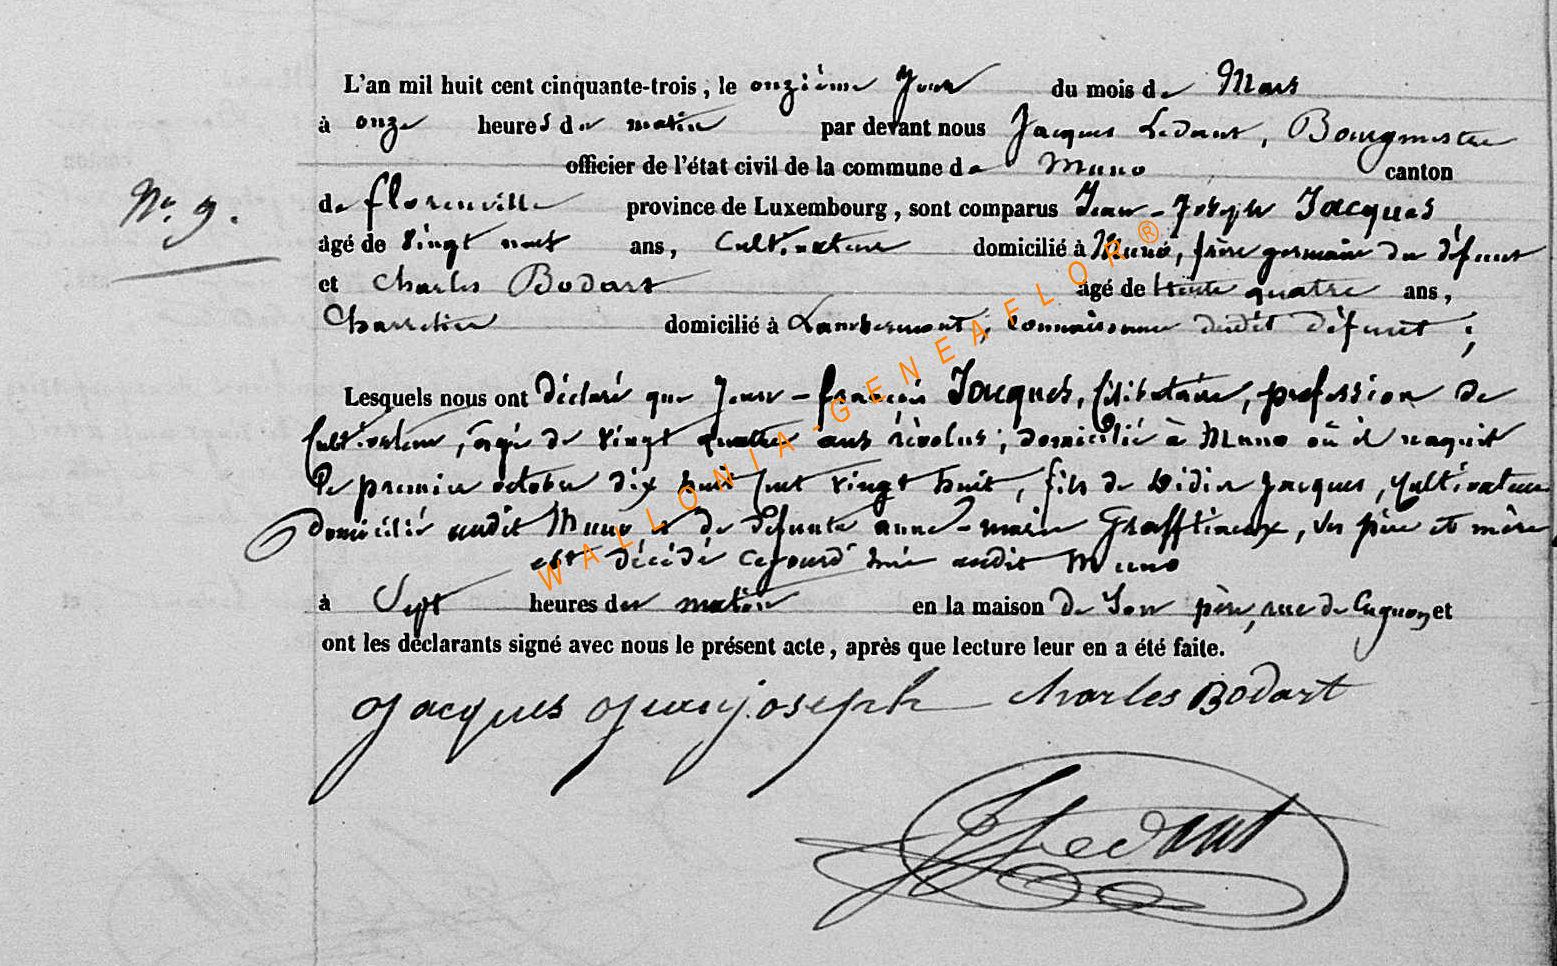 L'an mil huit cent cinquante-trois, le onzième Jour du mois de Mars
à onze heures du matin par devant nous Jacques Ledant, Bourgmestre
officier de l'état civil de la commune de Muno canton
N° 9.
de florenville province de Luxembourg, sont comparus Jean-Joseph Jacques
âgé de vingt neuf ans, Cultivateur domicilié à Muno, frère germain du défunt
et Charles Bodart âgé de trente quatre ans,
Charretier domicilié à Lambermont, Connaissance dudit défunt;
Lesquels nous ont déclaré que Jean-françois Jacques, Célibataire, profession de
Cultivateur, âgé de vingt quatre ans révolus; domicilié à Muno où il naquit
le premier octobre dix huit Cent vingt huit, fils de Didier Jacques, Cultivateur
domicilié audit Muno et de défunte anne-marie Grafftieaux, ses père et mère,
est décédé cejourd'hui audit Muno
à Sept heures du matin en la maison de Son père, rue de Cugnon, et
ont les déclarants signé avec nous le présent acte, après que lecture leur en a été faite.
Jacques Jean joseph Charles Bodart
J Ledant
WALLONIA-GENEAFLOR®